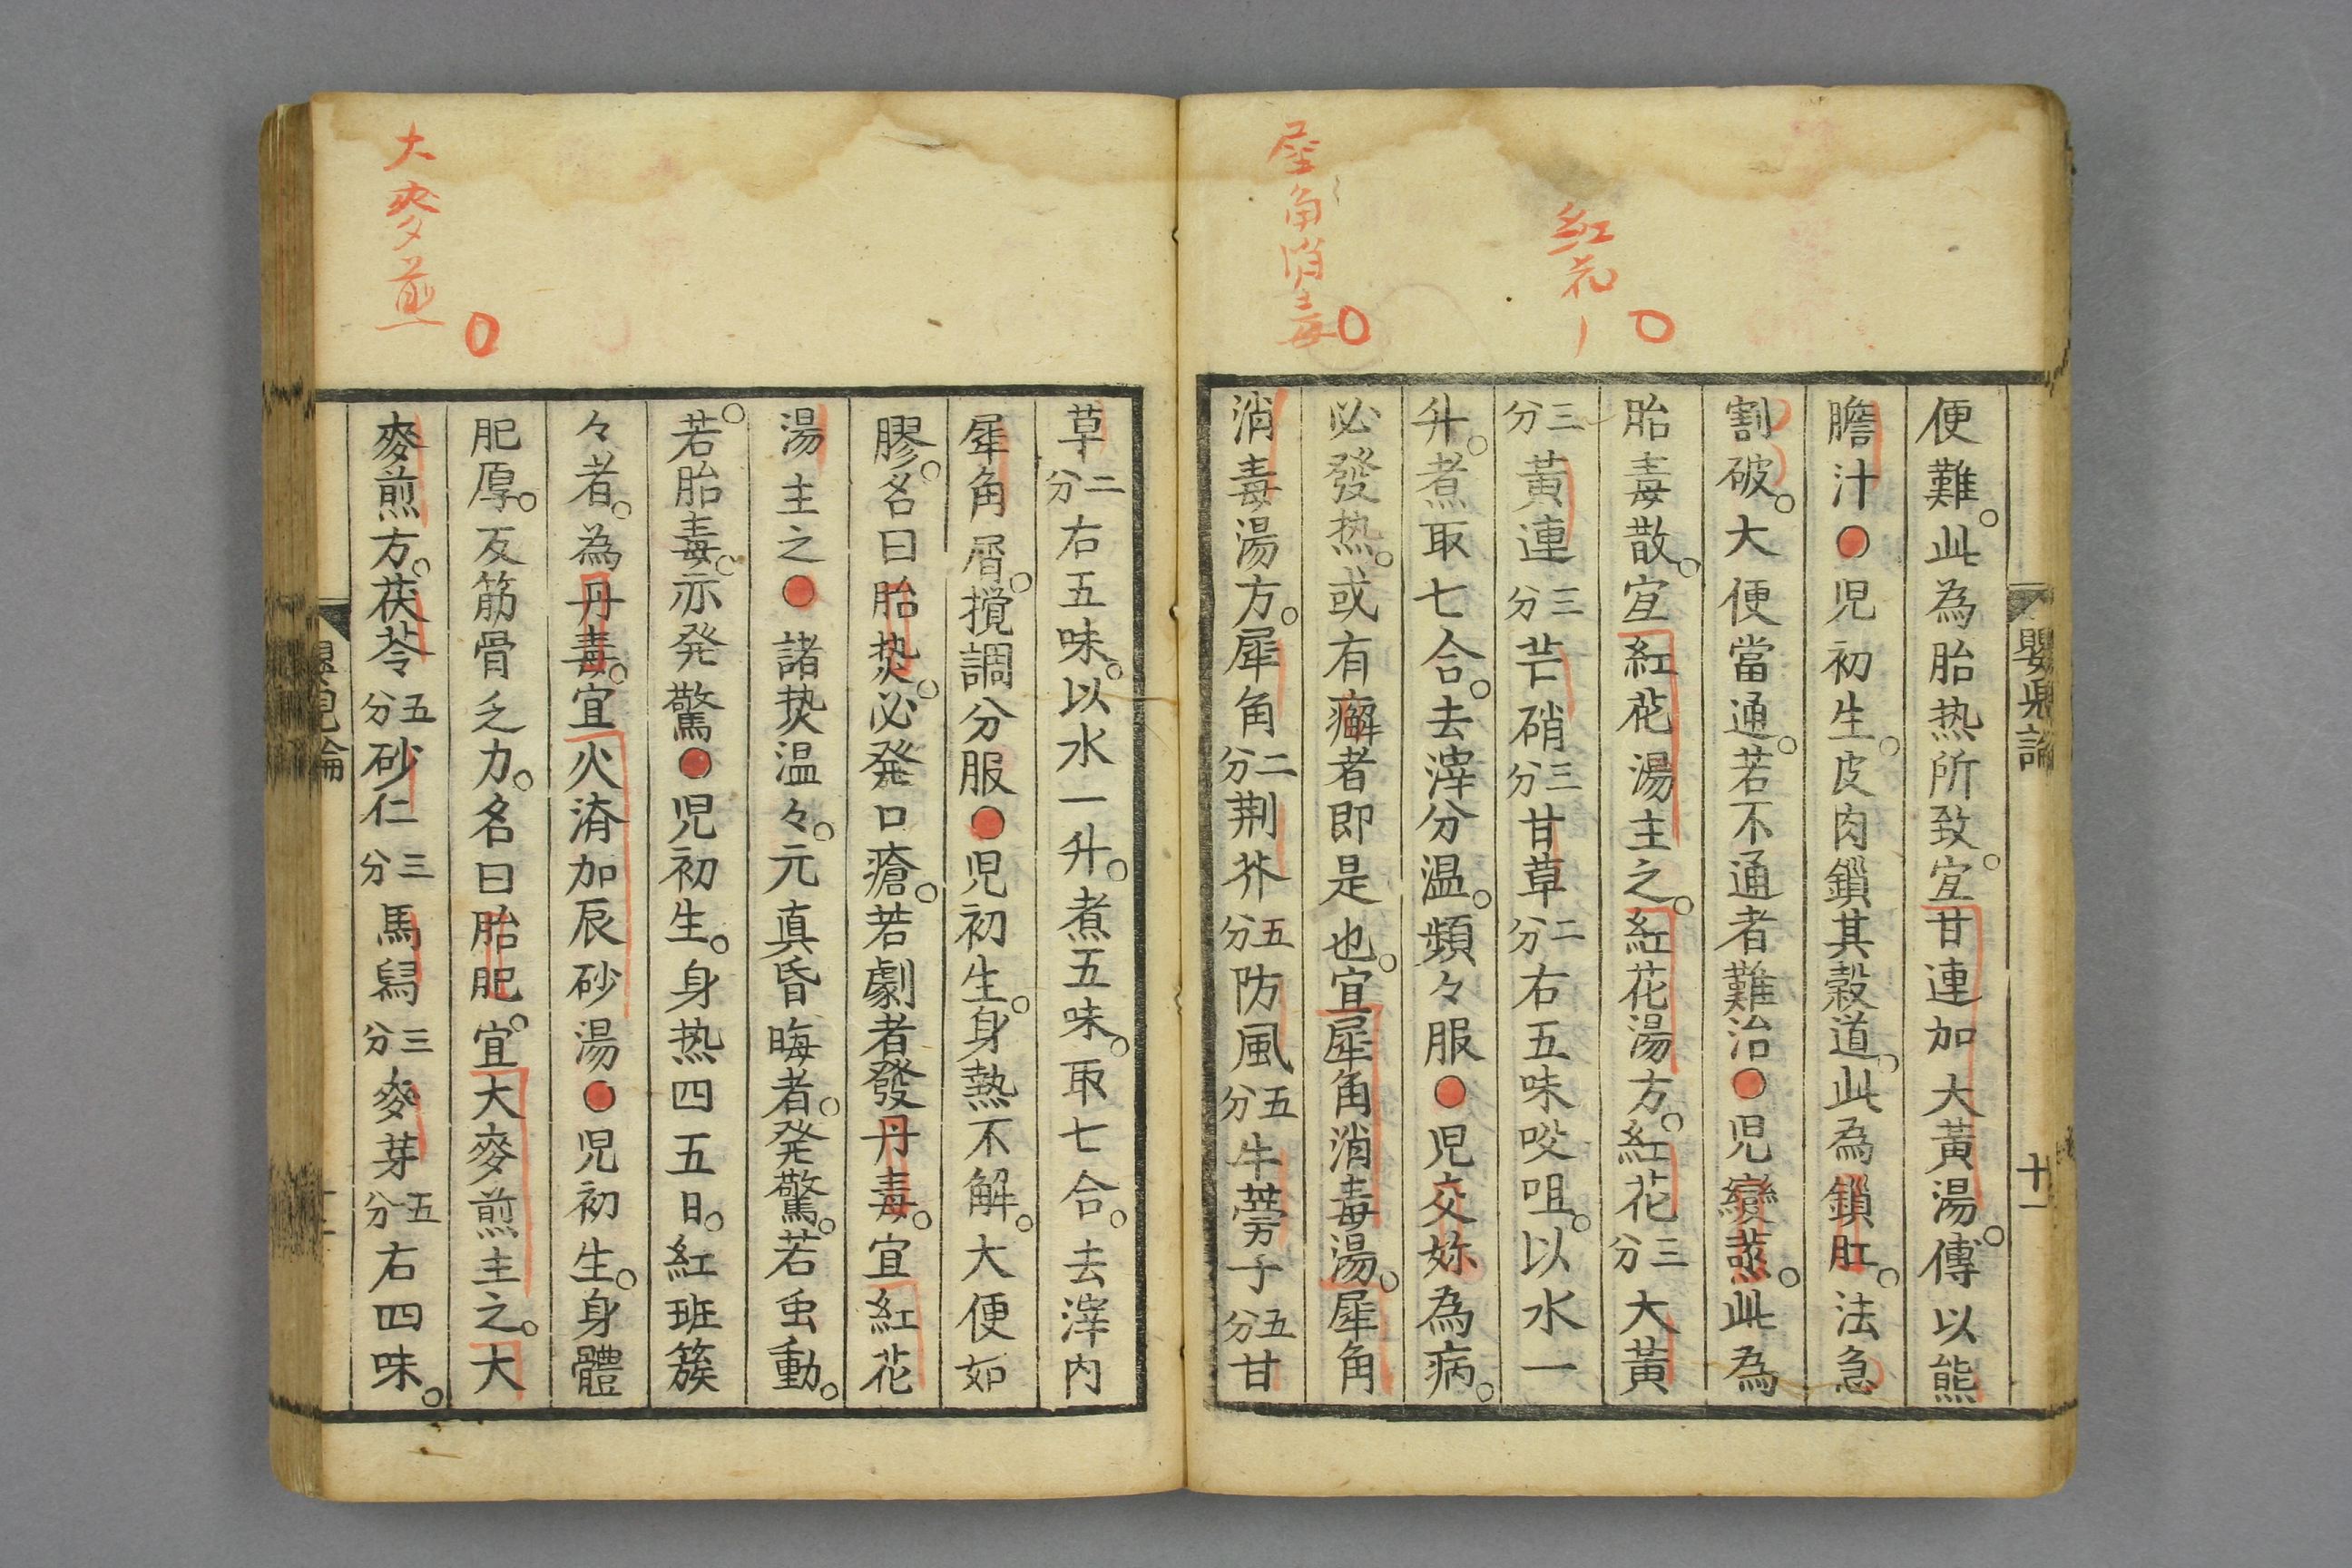 紅花
犀角消毒
便難。此為胎热所致。宜甘連加大黃湯。傅以熊
膽汁●児初生。皮肉鎖其穀道。此為鎖肛。法急
割破。大便當通。若不通者難治●児變蒸。此為
胎毒散。宜紅花湯主之。紅花湯方。紅花三分大黃
三分黃連三分芒硝三分甘草二分右五味㕮咀。以水一
升。煮取七合。去滓分温。頻々服●児交妳為病。
必發热。或有癬者即是也。宜犀角消毒湯。犀角
消毒湯方。犀角二分荆芥五分防風五分牛蒡子五分甘
嬰児論
十一
大麥煎
草二分右五味。以水一升。煮五味。取七合。去滓内
犀角屑。攪調分服●児初生。身熱不解。大便如
膠。名曰胎热。必発口瘡。若劇者發丹毒。宜紅花
湯主之●諸热温々。元真昏晦者。発驚。若虫動。
若胎毒。亦発驚●児初生。身热四五日。紅班簇
々者。為丹毒。宜火済加辰砂湯●児初生。身體
肥厚。反筋骨乏力。名曰胎肥。宜大麥煎主之。大
麥煎方。茯苓五分砂仁三分馬舄三分麥芽五分右四味。
嬰児論